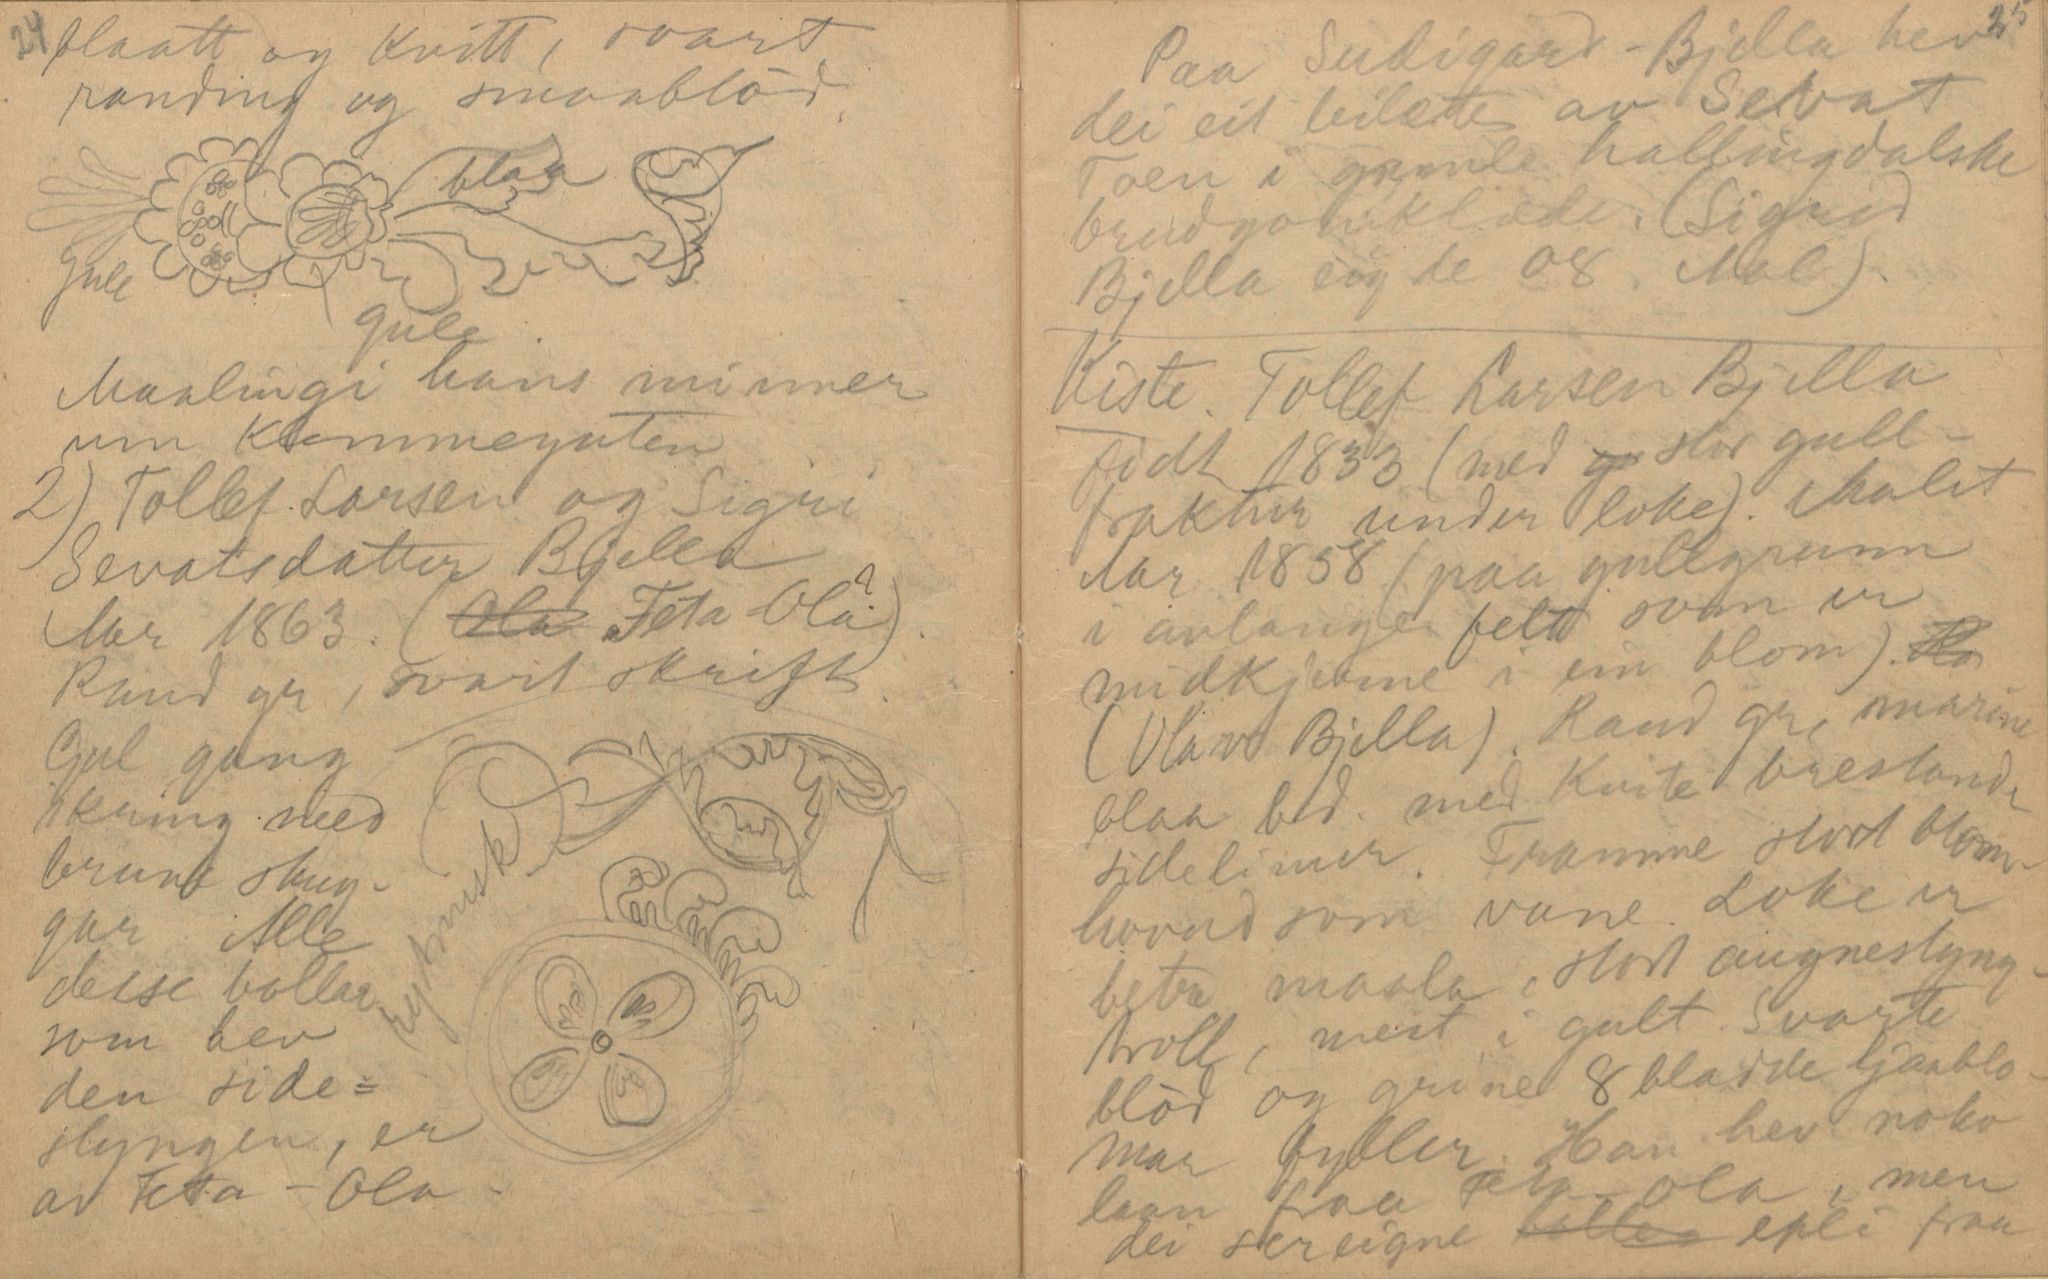 24
blaatt og kvitt, svart
randing og smaablöd.
blaa
gule
gule
Maalingi hans minner
um Kemmegaten
2) Tollef Larsen og Sigri
Sevatsdatter Bjella
Aar 1863. (Ola Feta-Ola?)
Raud gr, svart skrift.
Gul gang
ikring med
brune skug-
gar. Alle
desse bollar
som hev
den side-
slyngen, er
av Feta-Ola.
rytmisk
25
Paa Sudigard-Bjella hev
dei eit bilæte av Sevat
Toen i gamle hallingdalske
brudgomklæde. (Sigrid
Bjella eigde 08. Mal)
Kiste. Tollef Larsen Bjella
födt 1833 (med stor gull-
fraktur under loke). Malet
Aar 1858 (paa gullgrunn
i avlange felt som er
midkjerne i ein blom).
(Olav Bjella). Raud gr, marine
blaa bd. med kvite
sidelinur. Framme stort blom-
hovud som vane. Loke er
betre maala, stort augneslyng-
troll, mest i gult. Svarte
blöd og gröne 8 bladde tjanblo-
mar fyller. Han hev noko
laan fraa Feta-Ola, men
dei sereigne epli fraa